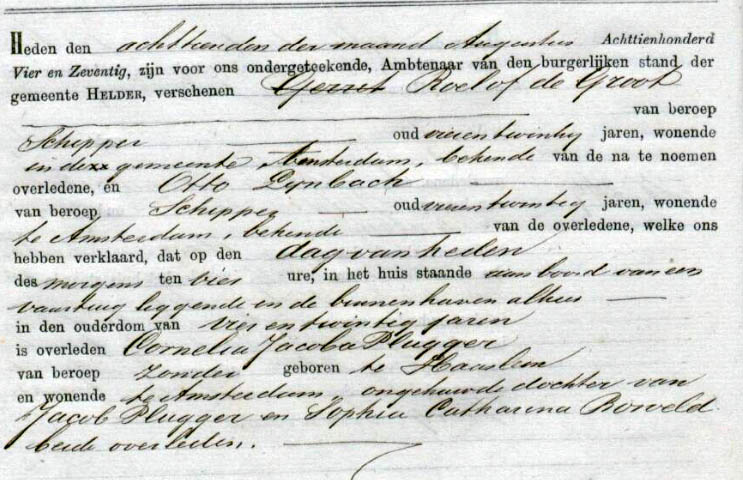 Heden den achttienden der maand Augustus Achttienhonderd
Vier en Zeventig, zijn voor ons ondergeteekende, Ambtenaar van den burgerlijken stand der
gemeente HELDER, verschenen Gerrit Roelof de Groot
van beroep
Schipper oud vierentwintig jaren, wonende
in de gemeente Amsterdam, bekende van de na te noemen
overledene, en Otto Lynbach
van beroep, Schipper oud vierentwintig jaren, wonende
te Amsterdam, bekende van de overledene, welke ons
hebben verklaard, dat op den dag van heden
des morgens ten vier ure, in het huis staande aan boord van een
vaartuig leggende in de binnenhaven alhier
in den ouderdom van vier en twintig jaren
is overleden Cornelia Jacoba Plugger
van beroep zonder geboren te Haarlem
en wonende te Amsterdam, ongehuwde dochter van
Jacob Plugger en Sophia Catharina Roweld
beide overleden.